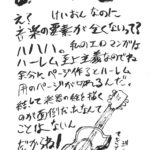 え? けいおんなのに
音楽の要素が全くないって?
ハハハ。私のエロマンガは
ハーレム至上主義なのでね
余分にページ作るとハーレム
用のページが切れるんだ。
決して楽器の絵を描く
のが面倒だったなんて
ことはないん
だからね!